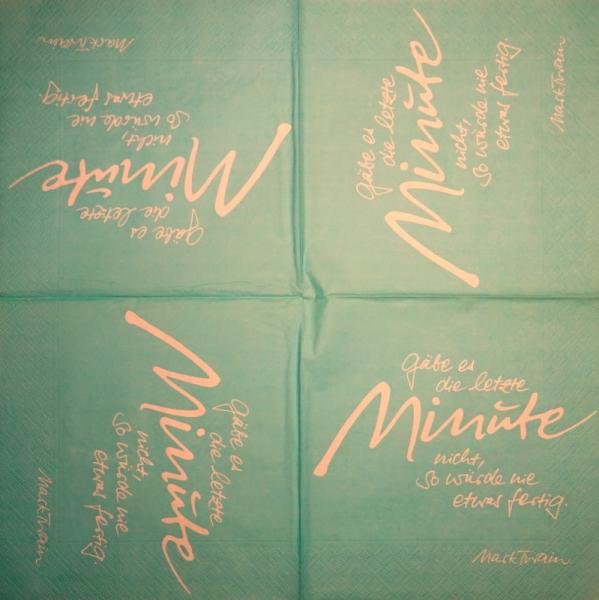 Gäbe es
die letzte
Minute
nicht,
so würde nie
etwas fertig.
Mark Twain
Gäbe es
die letzte
Minute
nicht,
so würde nie
etwas fertig.
Mark Twain
Gäbe es
die letzte
Minute
nicht,
so würde nie
etwas fertig.
Mark Twain
Gäbe es
die letzte
Minute
nicht,
so würde nie
etwas fertig.
Mark Twain